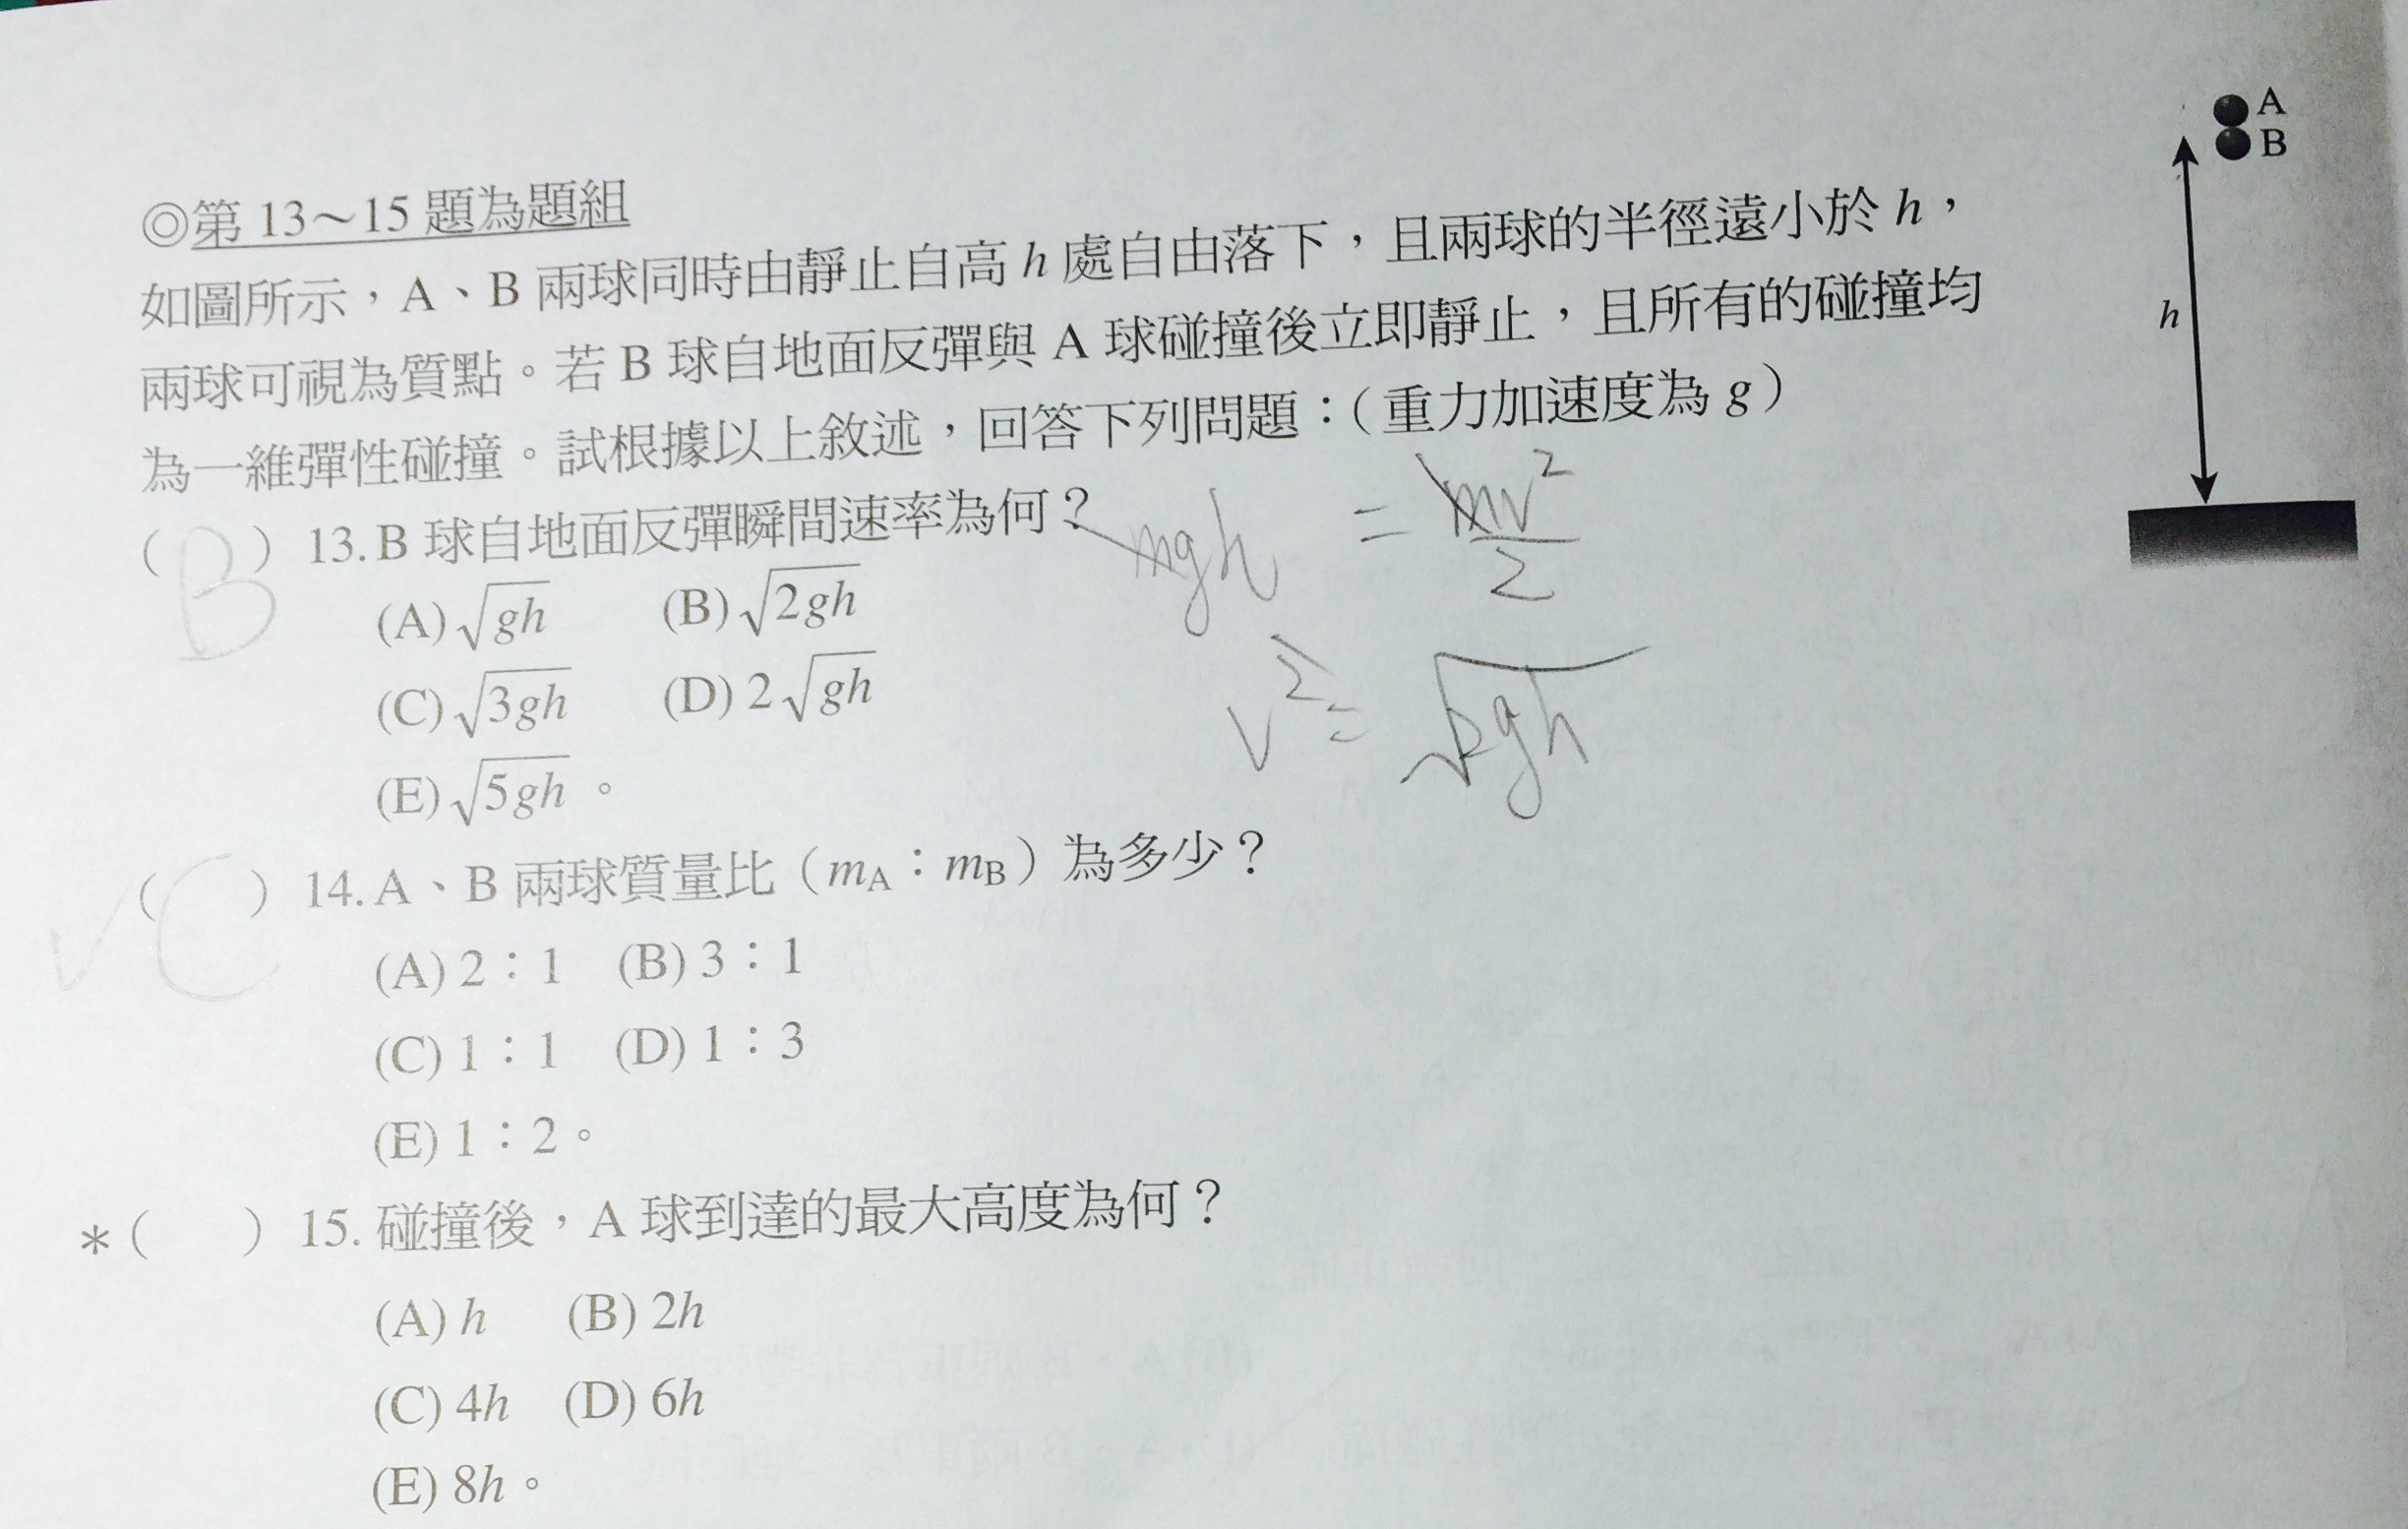 ◎第 13～15 題為題組
如圖所示，A、B 兩球同時由靜止自高 h 處自由落下，且兩球的半徑遠小於 h，
兩球可視為質點。若 B 球自地面反彈與 A 球碰撞後立即靜止，且所有的碰撞均
為一維彈性碰撞。試根據以上敘述，回答下列問題：（重力加速度為 g）
A
B
h
( B ) 13. B 球自地面反彈瞬間速率為何？
mgh = mv²/2
(A) √gh (B) √2gh
(C) √3gh (D) 2√gh
v² = √2gh
(E) √5gh。
( C ) 14. A、B 兩球質量比（mA：mB）為多少？
(A) 2：1 (B) 3：1
(C) 1：1 (D) 1：3
(E) 1：2。
＊( ) 15. 碰撞後，A 球到達的最大高度為何？
(A) h (B) 2h
(C) 4h (D) 6h
(E) 8h。